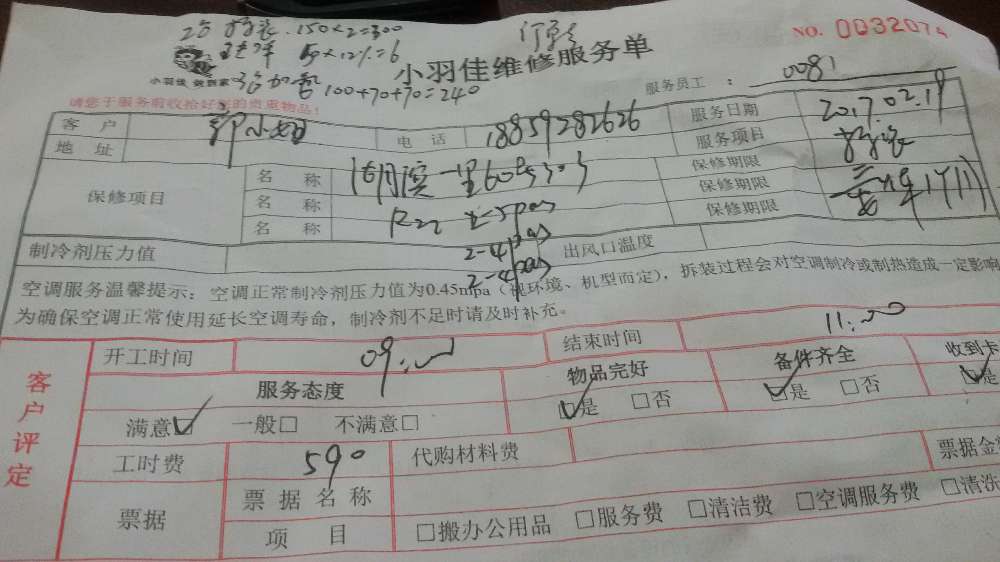 2台 移装 150×2=300
NO. 0032074
50×12%=6
小羽佳 做到家
3台加氟 100+70+70=240
小羽佳维修服务单
服务员工 : 0081
请您于服务前收拾好您的贵重物品!
客 户 郭小姐 电 话 18859282626 服务日期 2017.02.19
地 址 服务项目 移装
保修项目 名 称 保修期限
名 称 R22 保修期限
名 称 保修期限
制冷剂压力值 出风口温度
空调服务温馨提示:空调正常制冷剂压力值为0.45mpa(视环境、机型而定),拆装过程会对空调制冷或制热造成一定影响
为确保空调正常使用延长空调寿命,制冷剂不足时请及时补充。
客户评定
开工时间 09:00 结束时间 11:00
服务态度 物品完好 备件齐全 收到卡
满意☑ 一般□ 不满意□ ☑是 □否 ☑是 □否 ☑是
工时费 590 代购材料费 票据金
票据 票据名称
项 目 □搬办公用品 □服务费 □清洁费 □空调服务费 □清洗